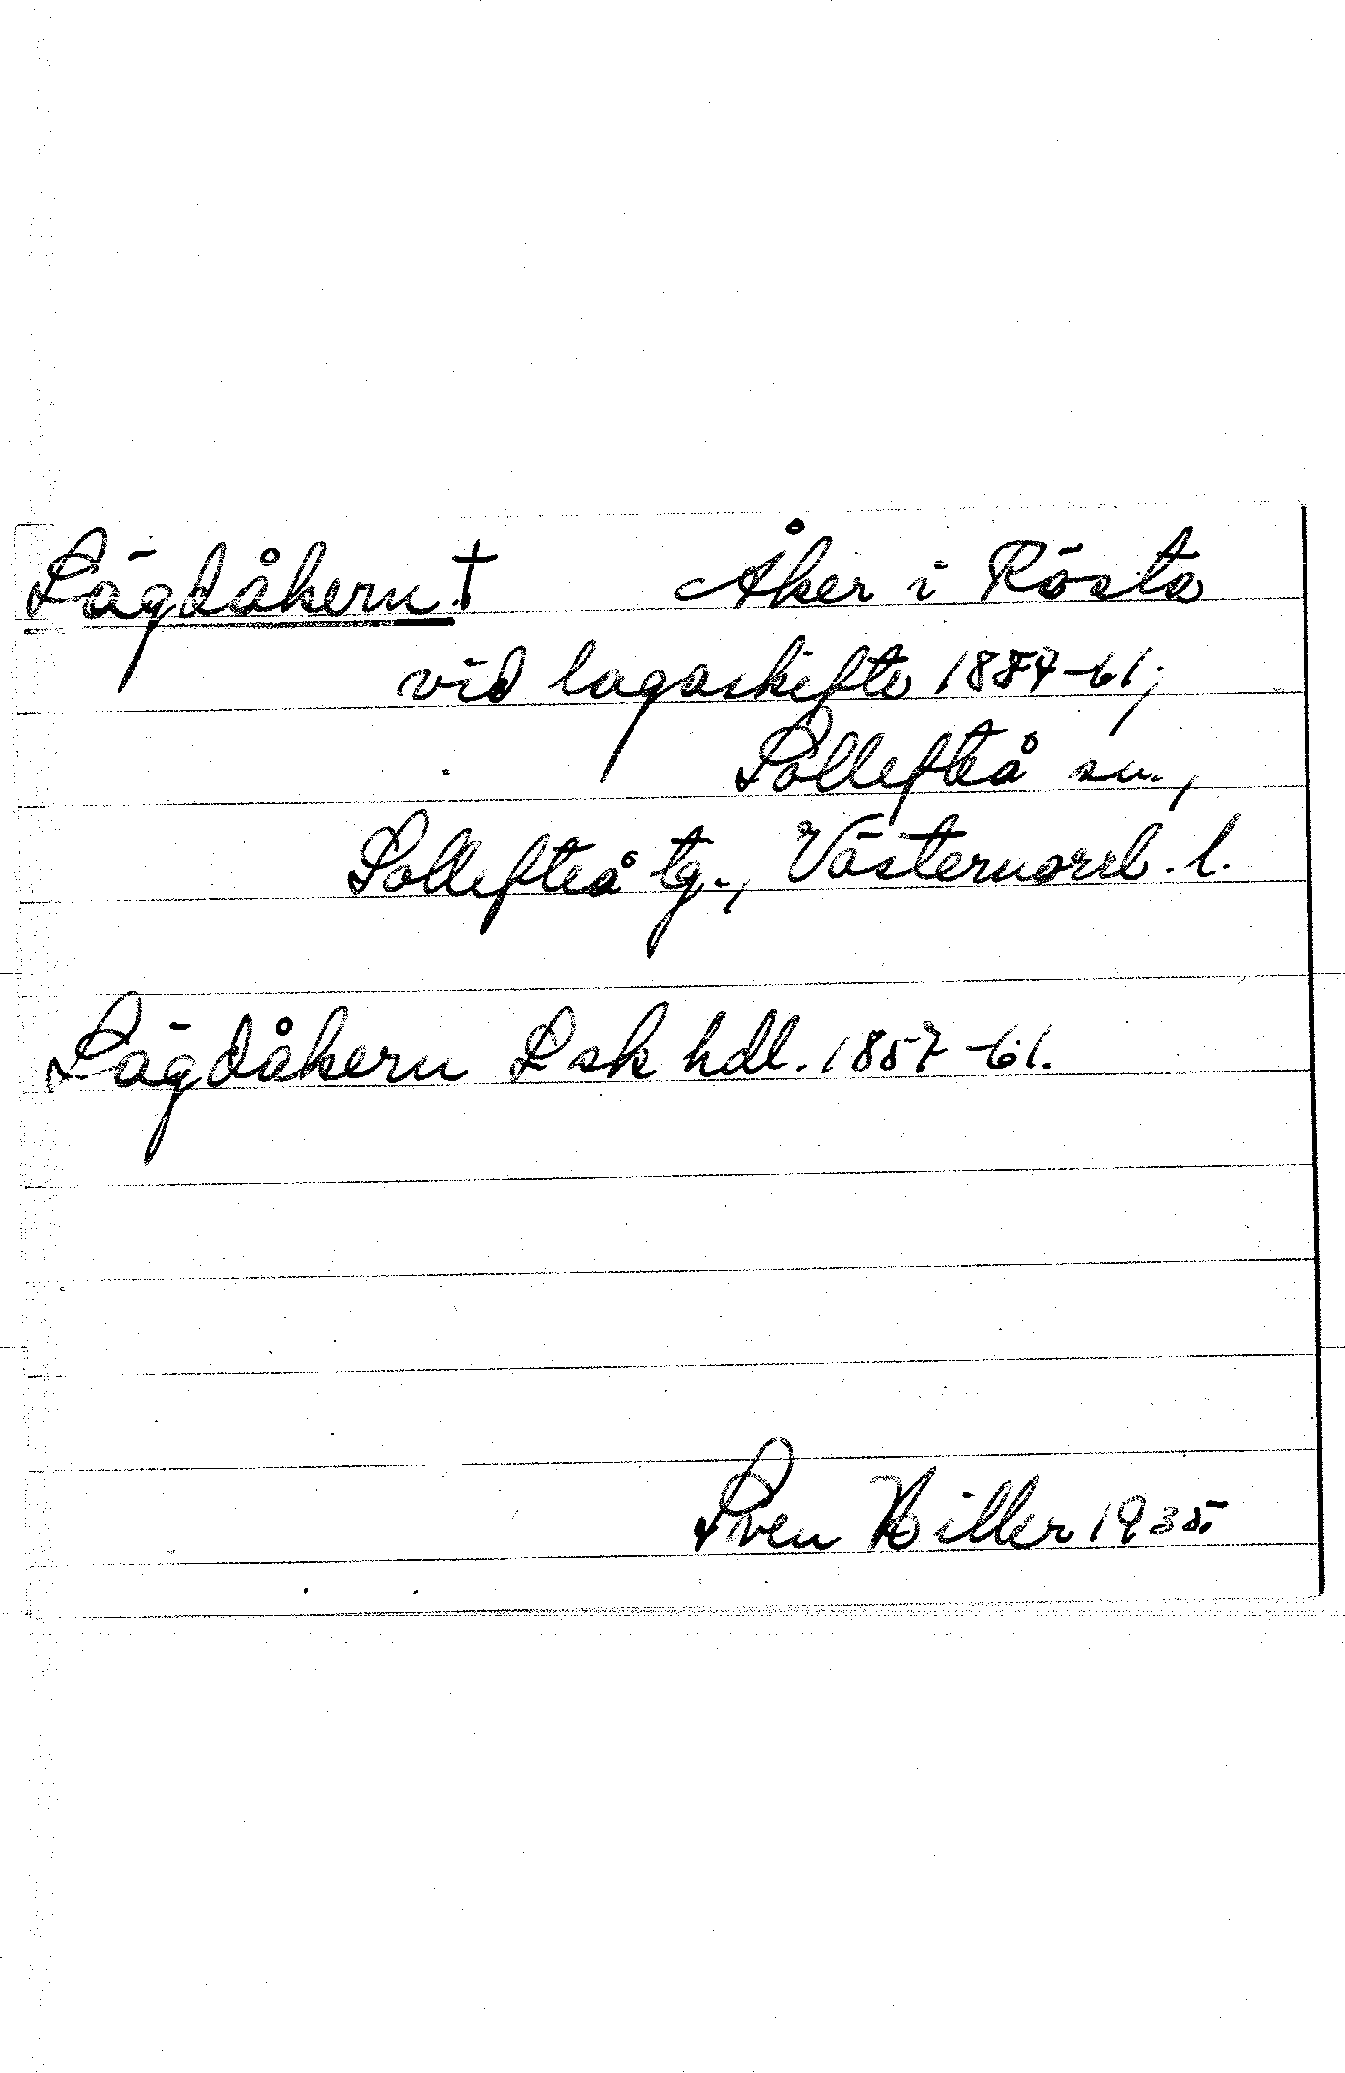 Lägdåkern † Åker i Rösta
vid lagaskifte 1857-61;
Sollefteå sn.,
Sollefteå tg., Västernorrl. l.
Lägdåkern Lsk hdl. 1857-61.
Sven Hiller 1935.